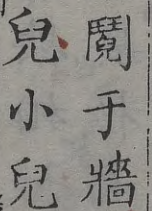 鬩于牆
兒小兒